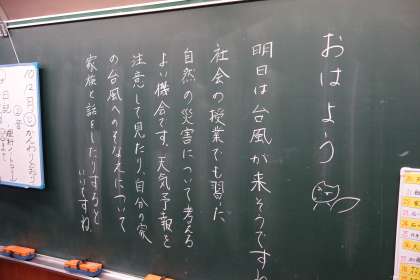 おはよう
明日は台風が来そうですね
社会の授業でも習った
自然の災害について考える
よい機会です。天気予報を
注意して見たり、自分の家
の台風へのそなえについて
家族と話をしたりすると
いいですね。
10
12
日
日記
かんわりとう